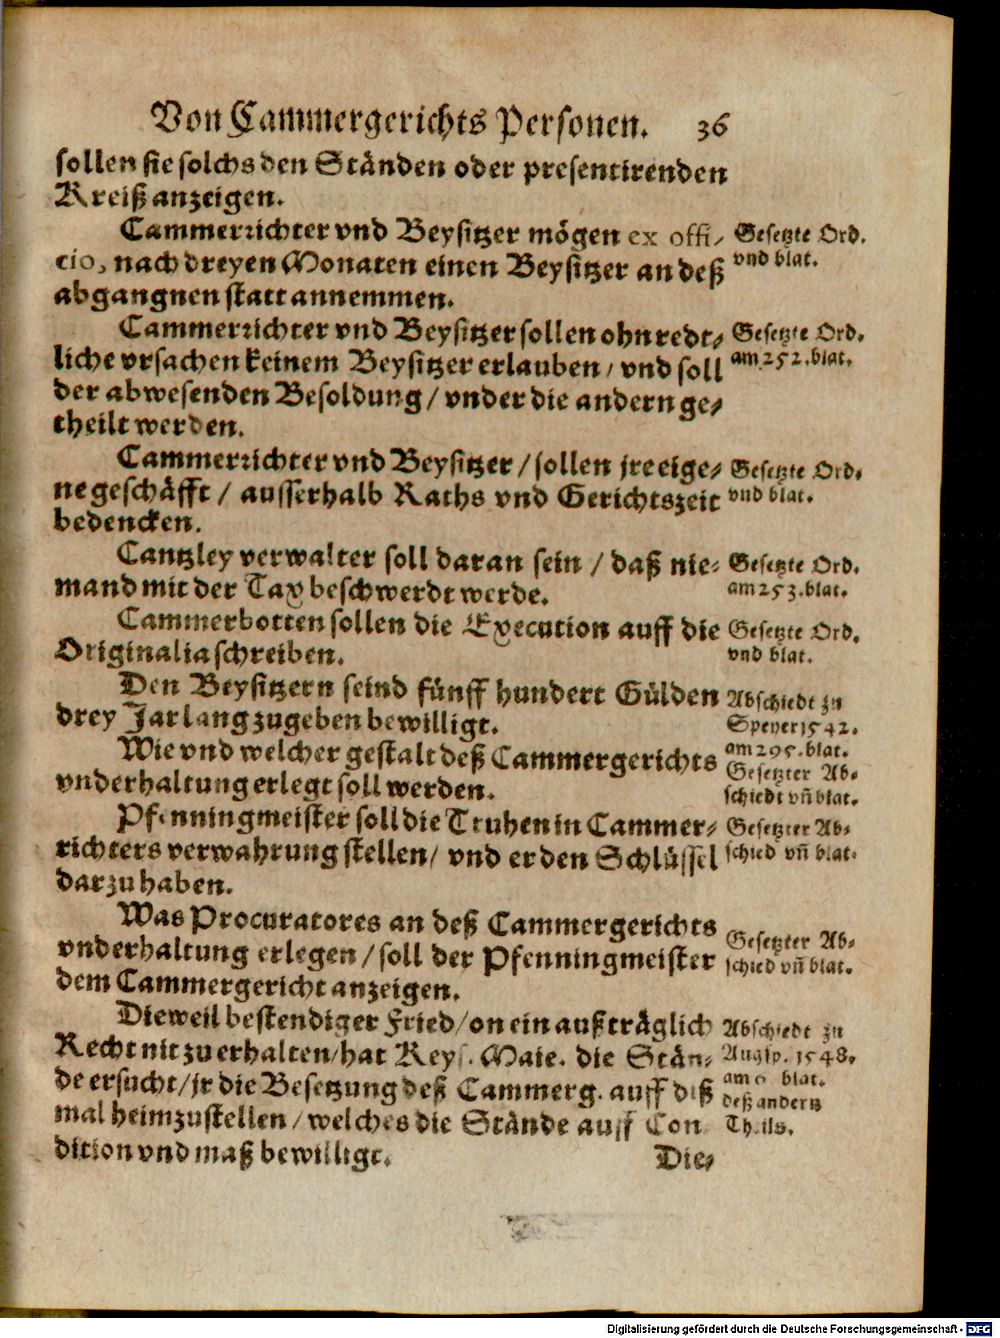 Von Cammergerichts Personen. 36
sollen sie solchs den Ständen oder presentirenden
Kreiß anzeigen.
Cammerrichter vnd Beysitzer mögen ex offi-
cio, nach dreyen Monaten einen Beysitzer an deß
abgangnen statt annemmen.
Gesetzte Ord.
vnd blat.
Cammerrichter vnd Beysitzer sollen ohn redt-
liche vrsachen keinem Beysitzer erlauben / vnd soll
der abwesenden Besoldung / vnder die andern ge-
theilt werden.
Gesetzte Ord.
am 252. blat.
Cammerrichter vnd Beysitzer / sollen jre eige-
ne geschäfft / ausserhalb Raths vnd Gerichtszeit
bedencken.
Gesetzte Ord.
vnd blat.
Cantzley verwalter soll daran sein / daß nie-
mand mit der Tax beschwerdt werde.
Gesetzte Ord.
am 253. blat.
Cammerbotten sollen die Execution auff die
Originalia schreiben.
Gesetzte Ord.
vnd blat.
Den Beysitzern seind fünff hundert Gülden
drey Jar lang zugeben bewilligt.
Abschiedt zu
Speyer 1542.
am 295. blat.
Wie vnd welcher gestalt deß Cammergerichts
vnderhaltung erlegt soll werden.
Gesetzter Ab-
schiedt vñ blat.
Pfenningmeister soll die Truhen in Cammer-
richters verwahrung stellen / vnd er den Schlüssel
darzu haben.
Gesetzter Ab-
schied vñ blat.
Was Procuratores an deß Cammergerichts
vnderhaltung erlegen / soll der Pfenningmeister
dem Cammergericht anzeigen.
Gesetzter Ab-
schied vñ blat.
Dieweil bestendiger Fried / on ein außträglich
Recht nit zu erhalten / hat Keys. Maie. die Stän-
de ersucht / jr die Besetzung deß Cammerg. auff diß
mal heimzustellen / welches die Stände auff Con
dition vnd maß bewilligt.
Abschiedt zu
Augsp. 1548.
am blat.
deß andern
Theils.
Die-
Digitalisierung gefördert durch die Deutsche Forschungsgemeinschaft - DFG